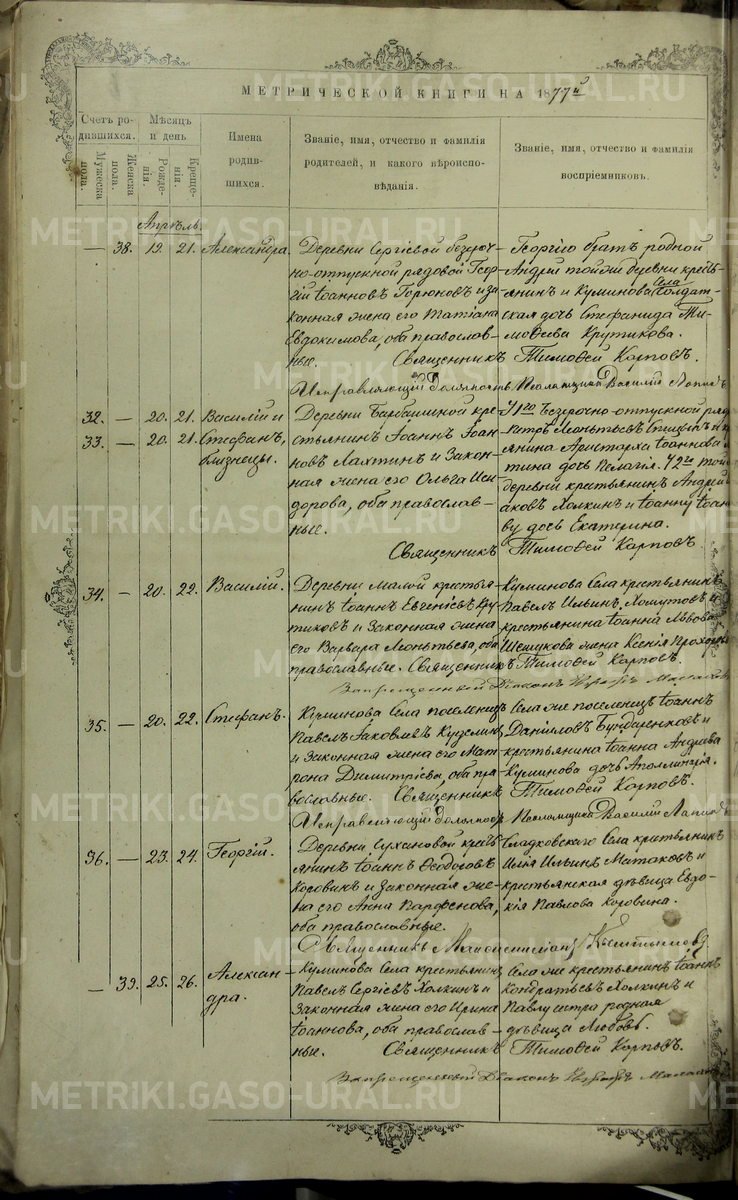 МЕТРИЧЕСКОЙ КНИГИ НА 1877й
Счетъ ро-
дившихся.
Мужеска
пола.
Женска
пола.
Мѣсяцъ
и день
Рожде-
нія.
Креще-
нія.
Имена
родив-
шихся.
Званіе, имя, отчество и фамилія
родителей, и какого вѣроиспо-
вѣданія.
Званіе, имя, отчество и фамилія
воспріемниковъ.
Апрѣль.
— 38. 19. 21. Александра.
Деревни Сергіевой безсроч-
но-отпускной рядовой Геор-
гій Іоанновъ Горюновъ и за-
конная жена его Татіана
Евдокимова, оба православ-
ные.
Георгію братъ родной
Андрей той же деревни кресть-
янинъ и Куминова села солдат-
ская дочь Стефанида Ти-
моѳеева Крутикова.
Священникъ Тимоѳей Карповъ.
Исправляющій должность Псаломщика Василій
32. — 20. 21. Василій и
33. — 20. 21. Стефанъ,
близнецы.
Деревни Барбашиной кре-
стьянинъ Іоаннъ Іоан-
новъ Лахтинъ и закон-
ная жена его Ольга Иси-
дорова, оба православ-
ные.
У 1го безсрочно-отпускной ряд
Петръ Леонтьевъ и
янина Аристарха Іоаннова
тина дочь Пелагія. У 2го той
деревни крестьянинъ Андрей
аковъ Холкинъ и Іоанну Іоан
ву дочь Екатерина.
Священникъ Тимоѳей Карповъ.
34. — 20. 22. Василій.
Деревни Малой крестья-
нинъ Іоаннъ Евгеніевъ Кру-
тиковъ и законная жена
его Варвара Леонтьева, оба
православные.
Куминова села крестьянинъ
Павелъ Ильинъ Хомутовъ и
крестьянина Іоанна Львова
жена Ксенія Прохоро
Священникъ Тимоѳей Карповъ.
Запрещенный Діаконъ
35. — 20. 22. Стефанъ.
Куминова села поселенецъ
Павелъ Іаковлевъ
и законная жена его Мат-
рона Димитріева, оба пра-
вославные.
Села же поселенецъ Іоаннъ
Даніиловъ Бундаренковъ и
крестьянина Іоанна Андреева
Куминова дочь Аполлинарія.
Священникъ Тимоѳей Карповъ.
Исправляющій должность Псаломщика Василій
36. — 23. 24. Георгій.
Деревни Сухановой кресть-
янинъ Іоаннъ Ѳеодоровъ
Коровинъ и законная же-
на его Анна Парфенова,
оба православные.
Сладковскаго села крестьянинъ
Илія Ильинъ Матаковъ и
крестьянская дѣвица Евдо-
кія Павлова Коровина.
Священникъ
— 39. 25. 26. Алексан-
дра.
Куминова села крестьянинъ
Павелъ Сергіевъ Холкинъ и
законная жена его Ирина
Іоаннова, оба православ-
ные.
Села же крестьянинъ Іоаннъ
Кондратьевъ Холкинъ и
Павлу сестра родная
дѣвица Любовь.
Священникъ Тимоѳей Карповъ.
Запрещенный Діаконъ
METRIKI.GASO-URAL.RU